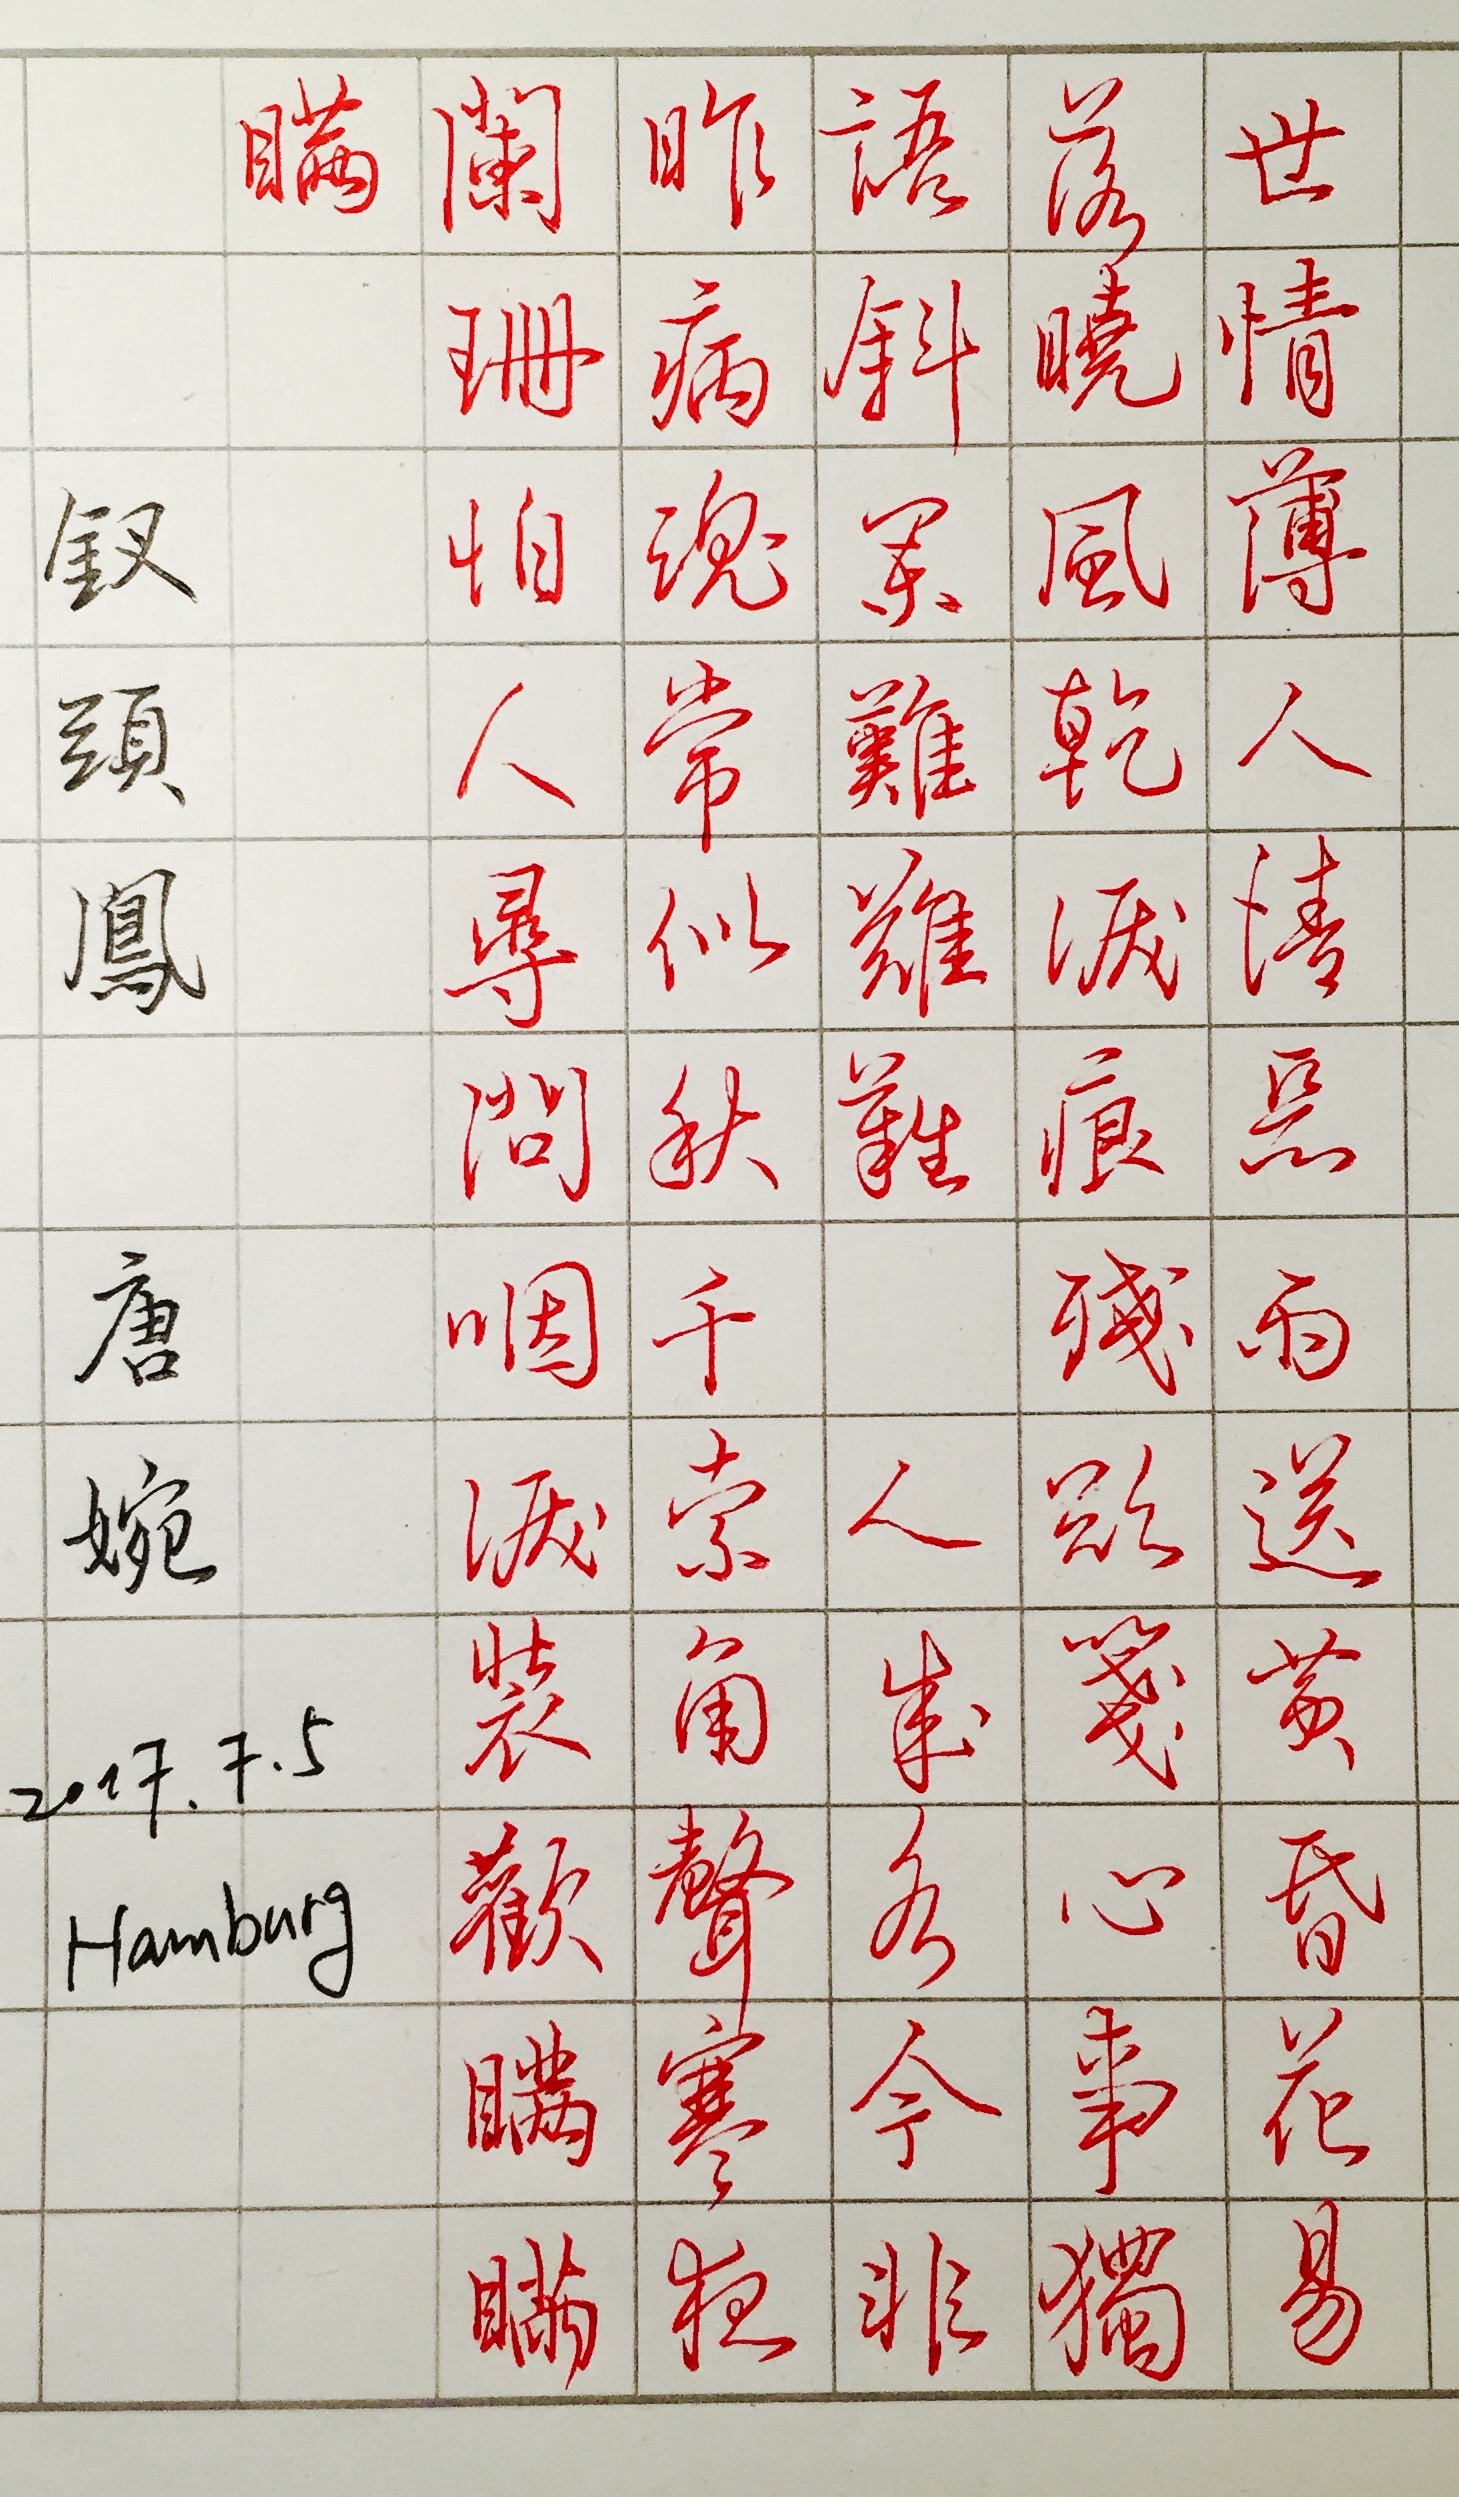 世情薄人情惡雨送黃昏花易
落曉風乾淚痕殘欲箋心事獨
語斜闌難難難 人成各今非
昨病魂常似秋千索角聲寒夜
闌珊怕人尋問咽淚裝歡瞞瞞
瞞
釵頭鳳 唐婉
2017.7.5
Hamburg